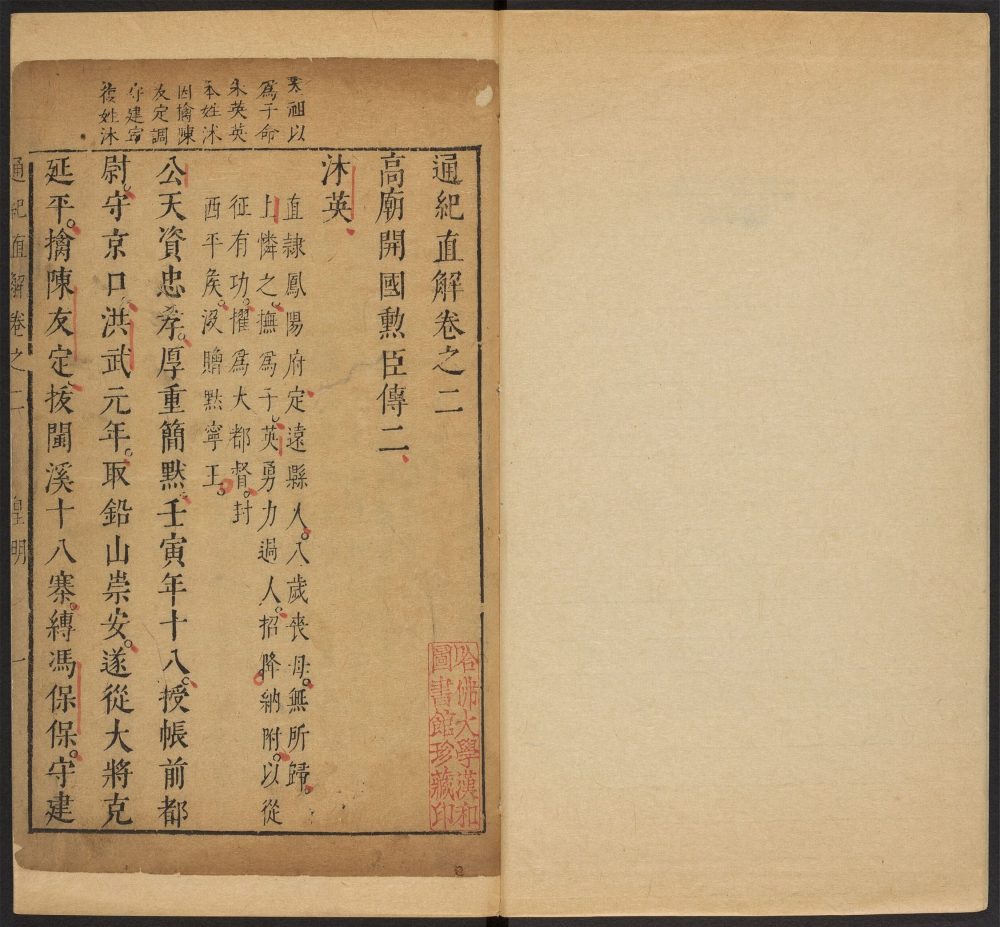 通紀直解卷之二
高廟開國勲臣傳二
沐英
直隷鳳陽府定遠縣人。八歲喪母。無所歸。
上憐之。撫爲子。英勇力過人。招降納附。以從
征有功。擢爲大都督。封
西平矦。没贈黔寧王。
公天資忠孝。厚重簡默。壬寅年十八。授帳前都
尉。守京口。洪武元年。取鉛山崇安。遂從大將克
延平。擒陳友定。拔閩溪十八寨。縛馮保保。守建
太祖以
爲子命
朱英英
本姓沭
因擒陳
友定調
守建寧
復姓沐
通紀直解卷之二 皇明 一
哈佛大學漢和
圖書館珍藏印